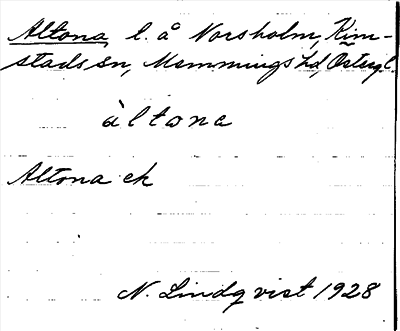 Altona, l. å Norsholm, Kim-
stads sn, Memmings hd, Östergl.
àltona
Altona ek
N. Lindqvist 1928